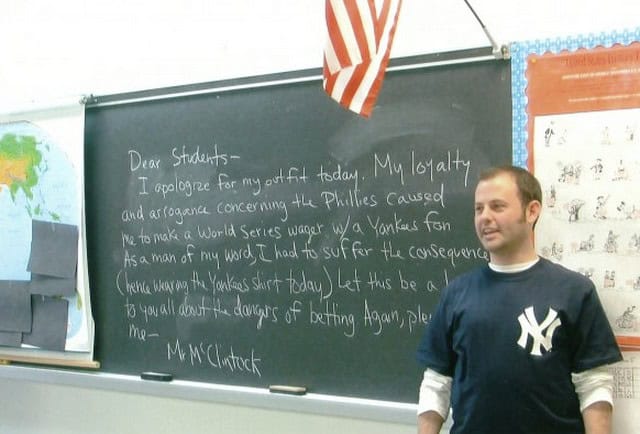 Dear Students-
I apologize for my outfit today. My loyalty
and arrogance concerning the Phillies caused
me to make a World Series wager w/ a Yankees fan
As a man of my word, I had to suffer the consequence
(hence wearing the Yankees shirt today) Let this be a
to you all about the dangers of betting Again,
me-
Mr McClintock
NY